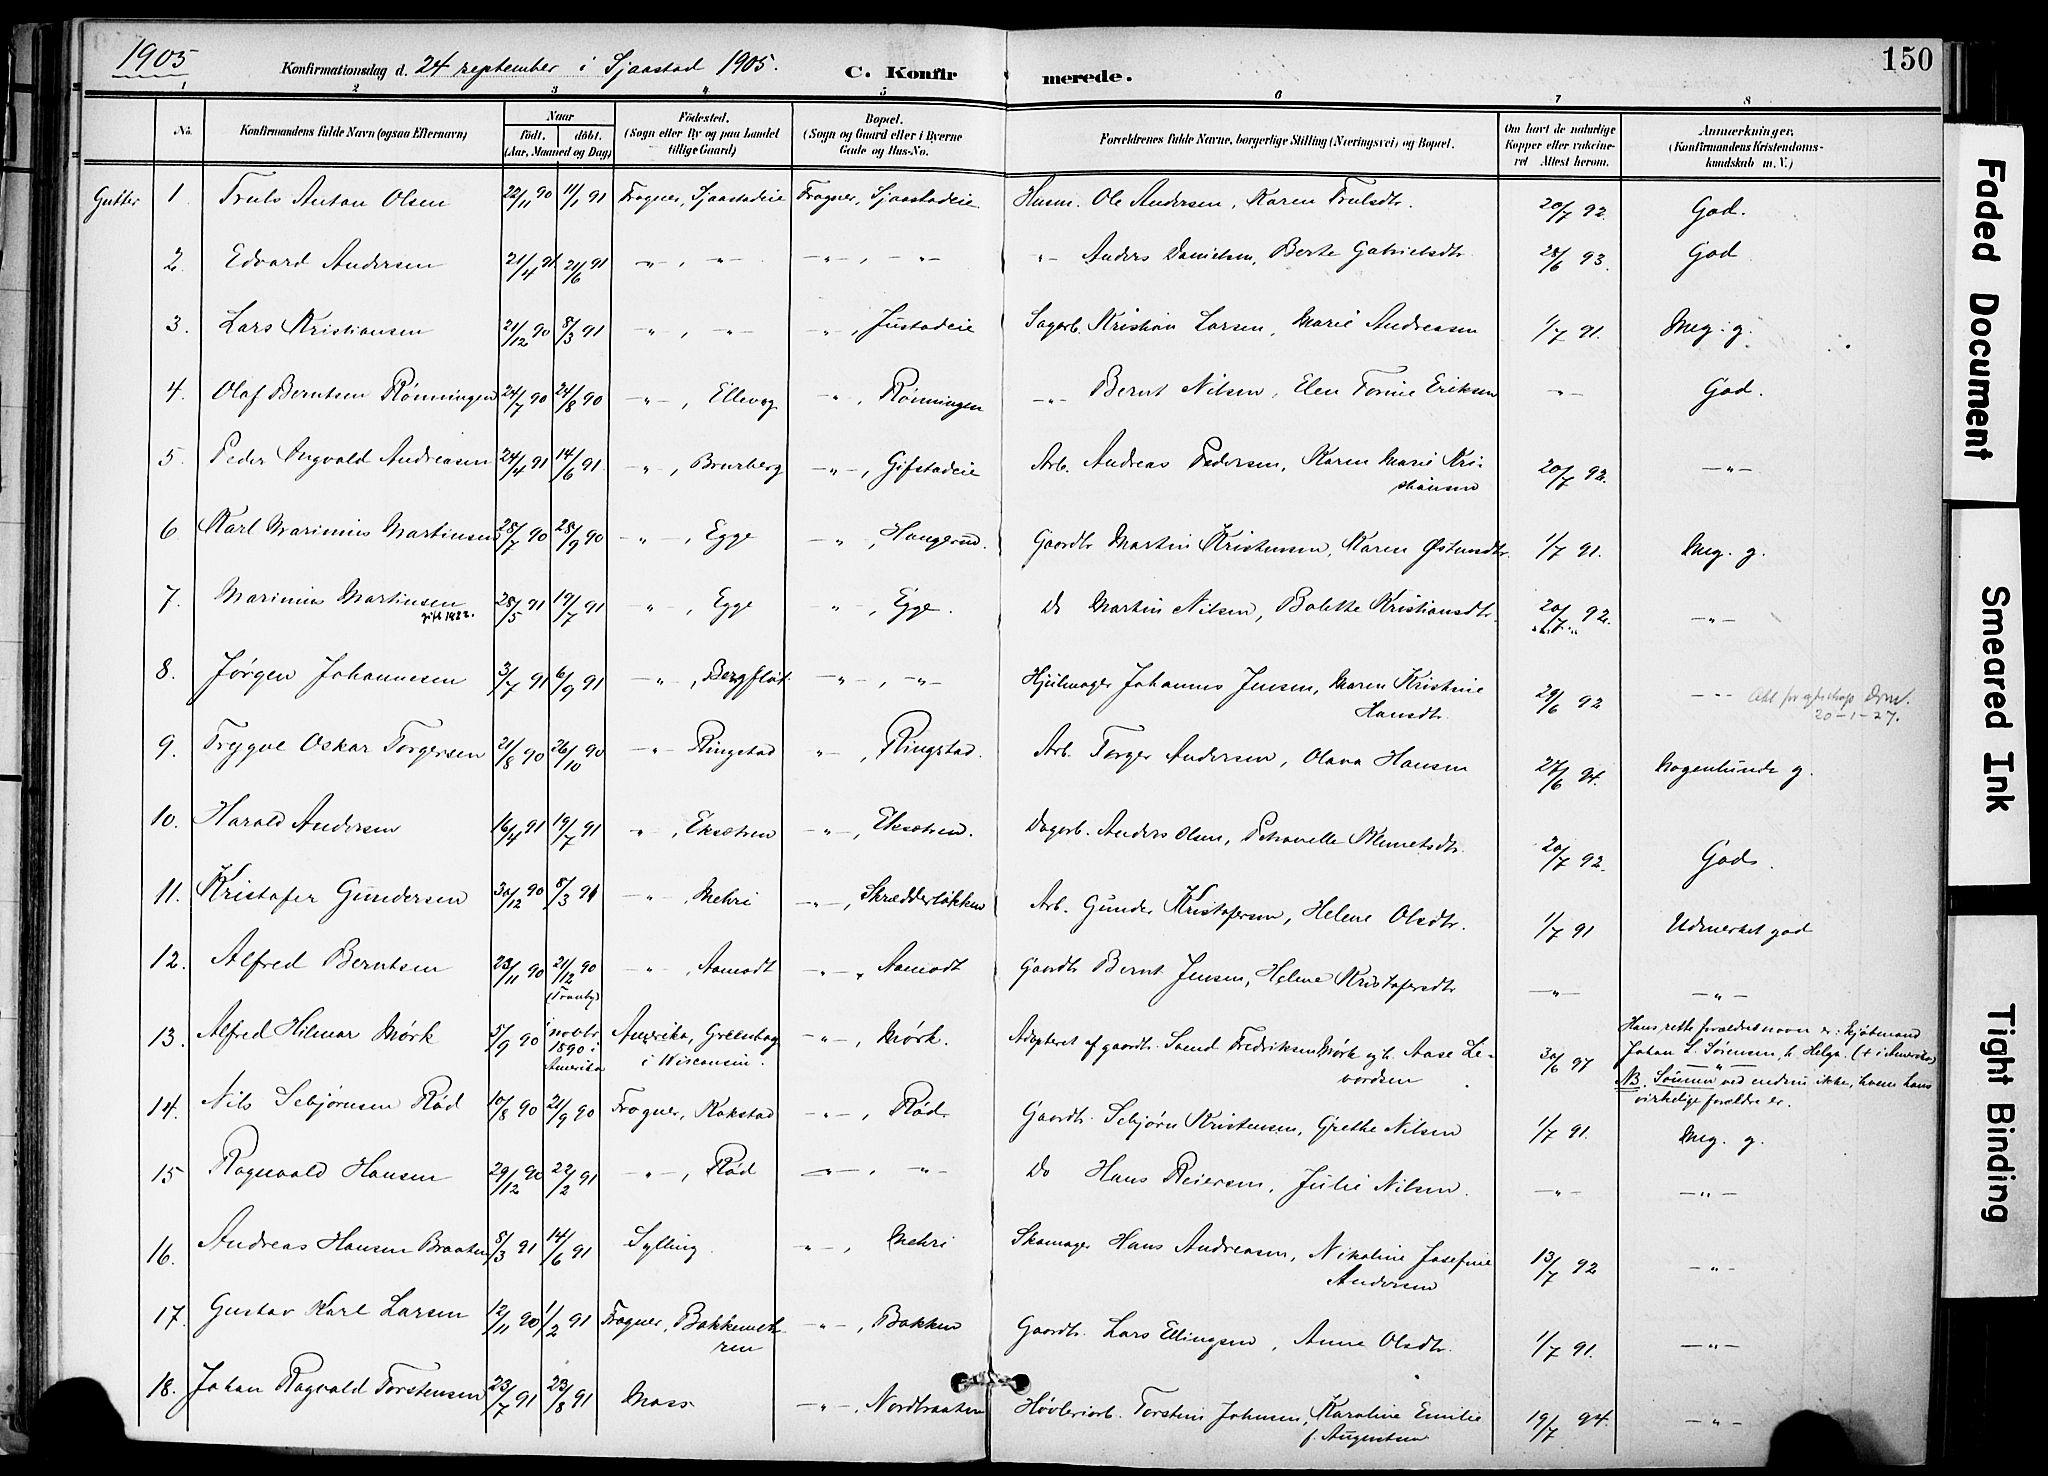 1905
Konfirmationsdag d. 24 september i Sjaastad 1905.
C. Konfirmerede.
150
1 2 3 4 5 6 7 8
No. Konfirmandens fulde Navn (ogsaa Efternavn) Naar født. døbt. (Aar, Maaned og Dag) Fødested. (Sogn eller By og paa Landet tillige Gaard) Bopæl. (Sogn og Gaard eller i Byerne Gade og Hus-No. Forældrenes fulde Navne, borgerlige Stilling (Næringsvei) og Bopæl. Om havt de naturlige Kopper eller vakcineret Attest herom. Anmærkninger. (Konfirmandens Kristendomskundskab m. V.)
Gutter 1. Truls Anton Olsen 22/11 90 11/1 91 Frogner, Sjaastadeie Frogner, Sjaastadeie Husm. Ole Andersen, Karen Trulsdtr. 20/7 92. God.
2. Edvard Andersen 21/4 91 21/6 91 -"-, -"- -"-, -"- -"- Anders Danielsen, Berte Gabrielsdtr. 28/6 93. God
3. Lars Kristiansen 21/12 90 8/3 91 -"-, -"- -"-, Justadeie Sagarb. Kristian Larsen, Marie Andreasen 1/7 91. Meg. g.
4. Olaf Berntsen Rønningen 24/7 90 24/8 90 -"-, Ellevog -"-, Rønningen -"- Bernt Nilsen, Elen Tomine Eriksen -"- God.
5. Peder Ingvald Andreasen 24/4 91 14/6 91 -"-, Brurberg -"-, Gifstadeie Arb. Andreas Pedersen, Karen Marie Kri-
stiansen 20/7 92. -"-
6. Karl Marinius Martinsen 28/7 90 28/9 90 -"-, Egge -"-, Haugerud. Gaardbr. Martin Kristensen, Karen Østensdtr. 1/7 91. Meg. g.
7. Marinius Martinsen 28/5 91 19/7 91 -"-, Egge -"-, Egge. Do Martin Nilsen, Bolette Kristiansdtr. 20/7 92. -"-
gift 1922.
8. Jørgen Johannesen 3/7 91 6/9 91 -"-, Bergflot -"-, -"- Hjulmager Johannes Jensen, Maren Kristine
Hansdtr. 29/6 92 -"- 20-1-27.
9. Trygve Oskar Torgersen 21/8 90 26/10 90 -"- Ringstad -"-, Ringstad. Arb. Torger Andersen, Olava Hansen 27/6 94. Nogenlunde g.
10. Harald Andersen 16/4 91 19/7 91 -"-, Eksætren -"-, Eksætren. Dagarb. Anders Olsen, Petronelle Klemetsdtr. 20/7 92. God.
11. Kristofer Gundersen 30/12 90 8/3 91 -"-, Mehri -"-, Skrædderløkken Arb. Gunder Kristofersen, Helene Olsdtr. 1/7 91 Udmerket god
12. Alfred Berntsen 23/11 90 21/12 90 -"-, Aamodt -"-, Aamodt Gaardbr. Bernt Jensen, Helene Kristofersdtr -"- -"-
(Tranby)
13. Alfred Hilmar Mørk 5/9 90 i novbr. 1890 i Amerika Amerika, Greenbay i Wisconsin. -"-, Mørk. Adopteret af gaardbr. Svend Fredriksen Mørk og h. Aase Le-
vordsen 30/6 97 Hans rette forældres navn er: kjøbmand
Johan L. Sørensen, h. Helga. (+ i Amerika)
-"-
NB. Sønnen ved endnu ikke, hvem hans
virkelige forældre er.
14. Nils Sebjørnsen Rød 10/8 90 21/9 90 Frogner, Rokstad -"-, Rød. Gaardbr. Sebjørn Kristensen, Grethe Nilsen 1/7 91. Meg. g.
15 Ragnvald Hansen 29/12 90 22/2 91 -"-, Rød -"-, -"- Do Hans Reiersen, Julie Nilsen. -"- -"-
16. Andreas Hansen Braaten 8/3 91 14/6 91 Sylling. -"-, Mehri Skomager Hans Andreasen, Nikoline Josefine
Andersen 13/7 92 -"-
17. Gustav Karl Larsen 12/11 90 1/2 91 Frogner, Bakkemet-
ren -"-, Bakken Gaardbr. Lars Ellingsen, Anne Olsdtr. 1/7 91. -"-
18. Johan Ragvald Torstensen 23/7 91 23/8 91 Moss -"-, Nordbraaten Høvleriarb. Torstein Johnsen, Karoline Emilie
f. Augustsen 19/7 94. -"-
Faded Document
Smeared Ink
Tight Binding